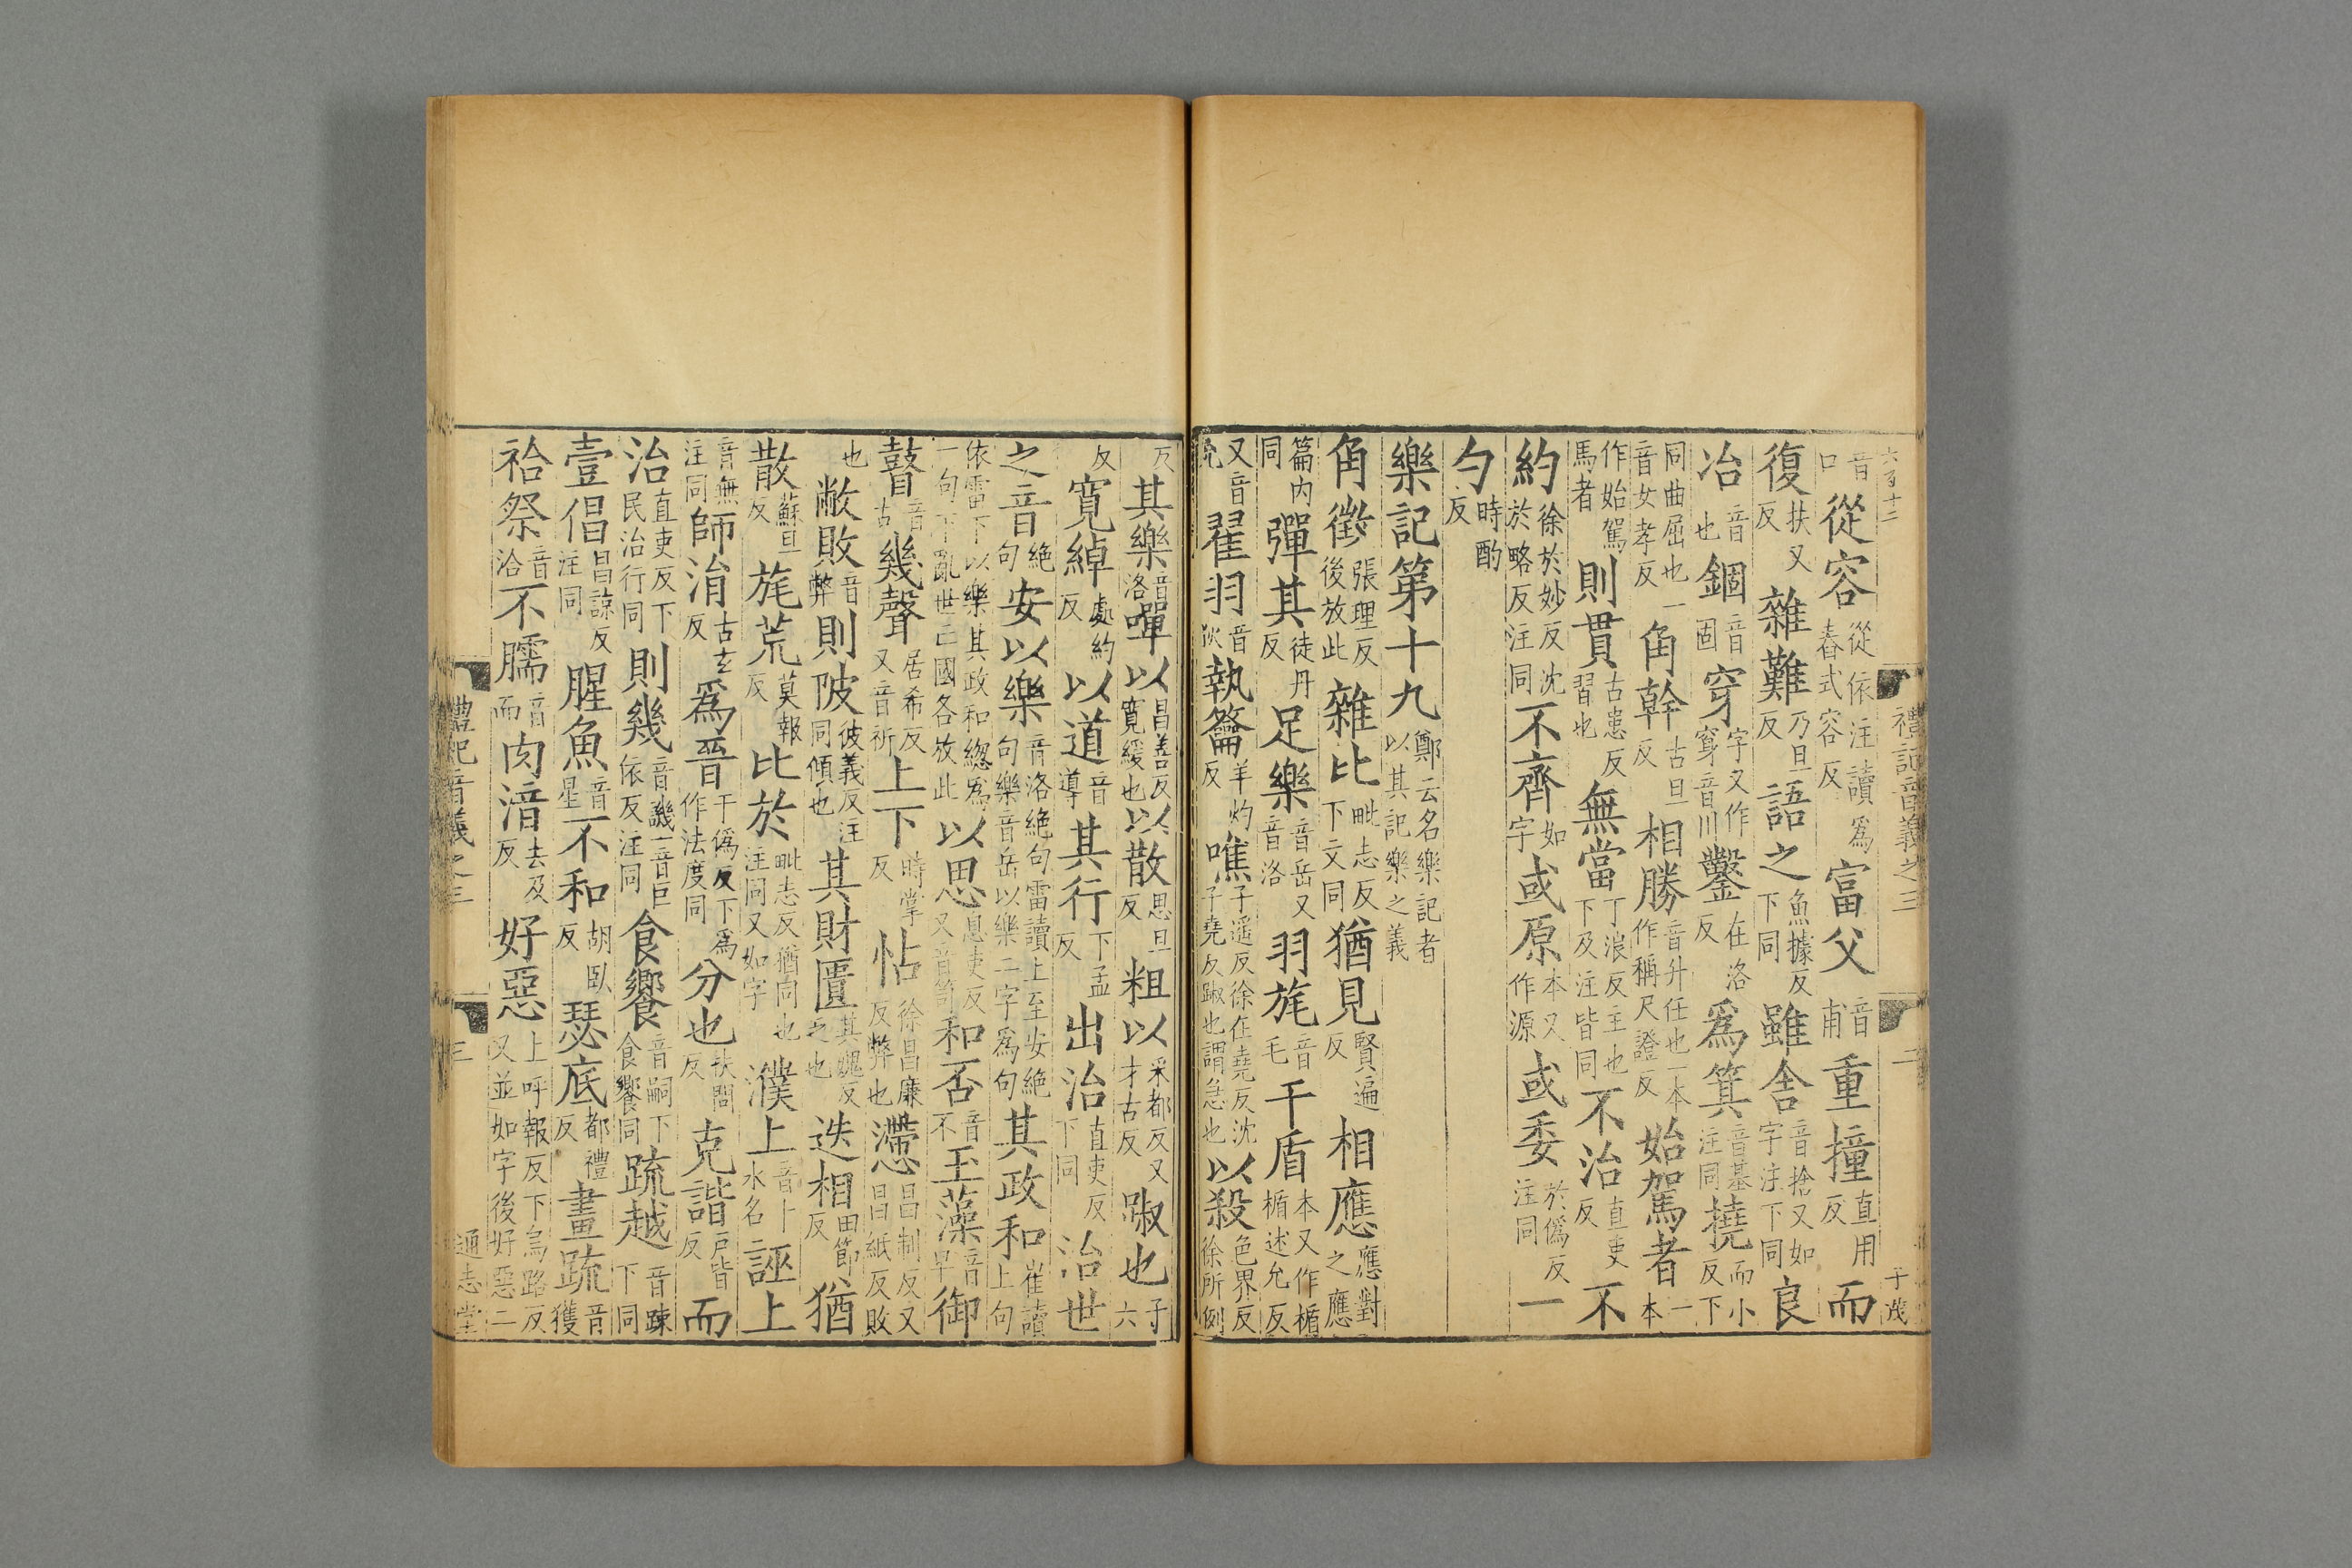 六百十二
禮記音義之三 二 于茂
音口從容從依注讀爲舂式容反富父音甫重撞直用反而
復扶又反雜難乃旦反語之魚據反下同雖舍音捨又如字注下同良
冶音也錮音固穿字又作窜音川鑿在洛反爲箕音基注同撓而小反下
同曲屈也一音女孝反角幹古旦反相勝音升任也一本作稱尺證反始駕者一本
作始駕馬者則貫古患反習也無當丁浪反主也下及注皆同不治直吏反不
約徐於妙反沈於略反注同不齊如字或原本又作源或委於僞反注同一
勺時酌反
樂記第十九鄭云名樂記者以其記樂之義
角徵張理反後放此雜比毗志反下文同猶見賢遍反相應應對之應
篇內同彈其徒丹反足樂音岳又音洛羽旄音毛干盾本又作楯述允反楯
又音允翟羽音狄執籥羊灼反噍子遥反徐在堯反沈子堯反踧也謂急也以殺色界反徐所例
反其樂音洛嘽以昌善反寬緩也以散思旦反粗以采都反又才古反踧也子六
反寬綽處約反以道音導其行下孟反出治直吏反下同治世
之音絶句安以樂音洛絶句雷讀上至安絶句樂音岳以樂二字爲句其政和崔讀上句
依雷下以樂其政和緫爲一句下亂世亡國各放此以思息吏反又音笥和否音不玉藻音早御
瞽音古幾聲居希反又音祈上下時掌反怗徐昌廉反弊也懘昌制反又昌紙反敗
也敝敗音弊則陂彼義反注同傾也其財匱其媿反乏也迭相田節反猶
散蘇旦反旄荒莫報反比於毗志反猶同也注同又如字濮上音卜水名誣上
音無注同師涓古玄反爲晉于僞反下爲作法度同分也扶問反克諧戶皆反而
治直吏反下民治行同則幾音譏一音巨依反注同食饗音嗣下食饗同疏越音疎下同
壹倡昌諒反注同腥魚音星不和胡臥反瑟底都禮反畫疏音獲
祫祭音洽不臑音而肉湆去及反好惡上呼報反下烏路反又並如字後好惡二
禮記音義之三 三 通志堂